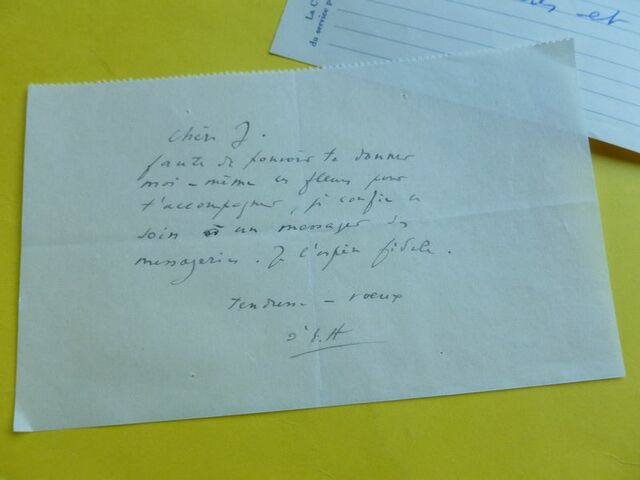 La C
du service p
et
Chère J.
faute de pouvoir te donner
moi-même ces fleurs pour
t'accompagner, j'en confie ce
soin à un messager des
messageries. Je l'espère fidèle.
tendresse - voeux